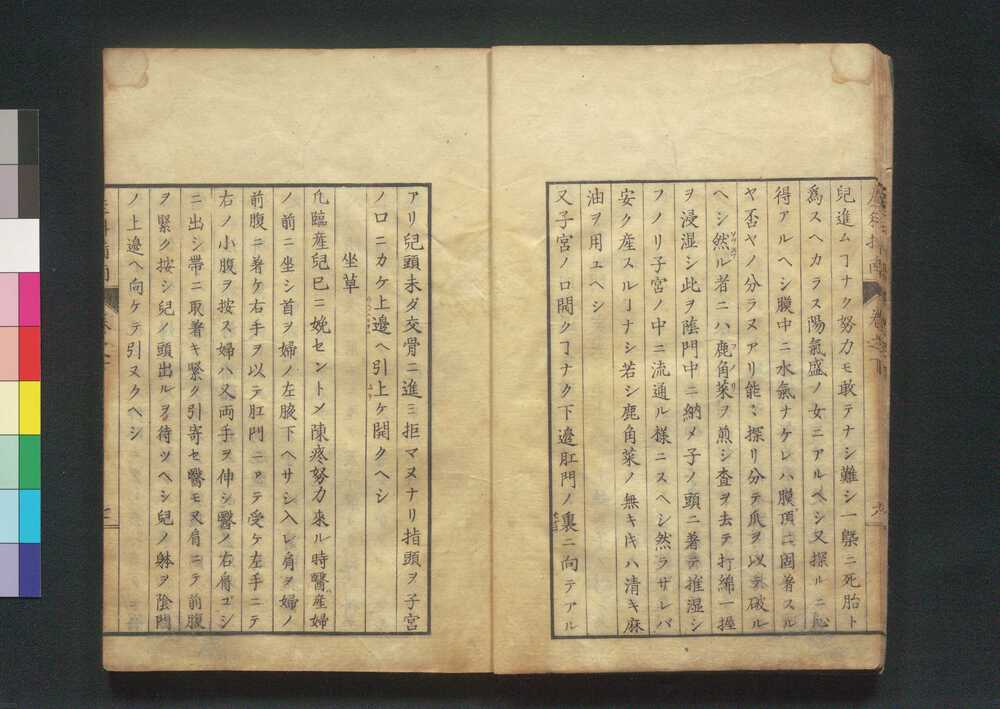 産科指南 卷之下 九
兒進ムヿナク努力モ敢テナシ難シ一槩ニ死胎ト
爲スヘカラス陽氣盛ノ女ニアルベシ又探ルニ心
得アルヘシ膜中ニ水氣ナケレハ膜頂ニ固著スル
ヤ否ヤノ分ラヌアリ能ミ探リ分テ爪ヲ以テ破ル
ヘシ然ル者ニハ鹿角菜ヲ煎シ査ヲ去テ打綿一握
フノリ
ヲ浸湿シ此ヲ陰門中ニ納メ子ノ頭ニ著テ推湿シ
フノリ子宮ノ中ニ流通ル様ニスヘシ然ラサレバ
安ク産スルヿナシ若シ鹿角菜ノ無キキハ清キ麻
油ヲ用ユヘシ
又子宮ノ口開クヿナク下邉肛門ノ裏ニ向テアル
アリ兒頭未ダ交骨ニ進ミ拒マヌナリ指頭ヲ子宮
ノ口ニカケ上邉ヘ引上ケ開クヘシ
坐草
凢臨産兒已ニ娩セントメ陳疼努力來ル時醫産婦
ノ前ニ坐シ首ヲ婦ノ左腋下ヘサシ入レ肩ヲ婦ノ
前腹ニ著ケ右手ヲ以テ肛門ニアテ受ケ左手ニテ
右ノ小腹ヲ按ス婦ハ又両手ヲ伸シ醫ノ右肩ゴシ
ニ出シ帶ニ取著キ緊ク引寄セ醫モ又肩ニテ前腹
ヲ緊ク按シ兒ノ頭出ルヲ待ツヘシ兒ノ躰ヲ陰門
ノ上邉ヘ向ケテ引ヌクヘシ